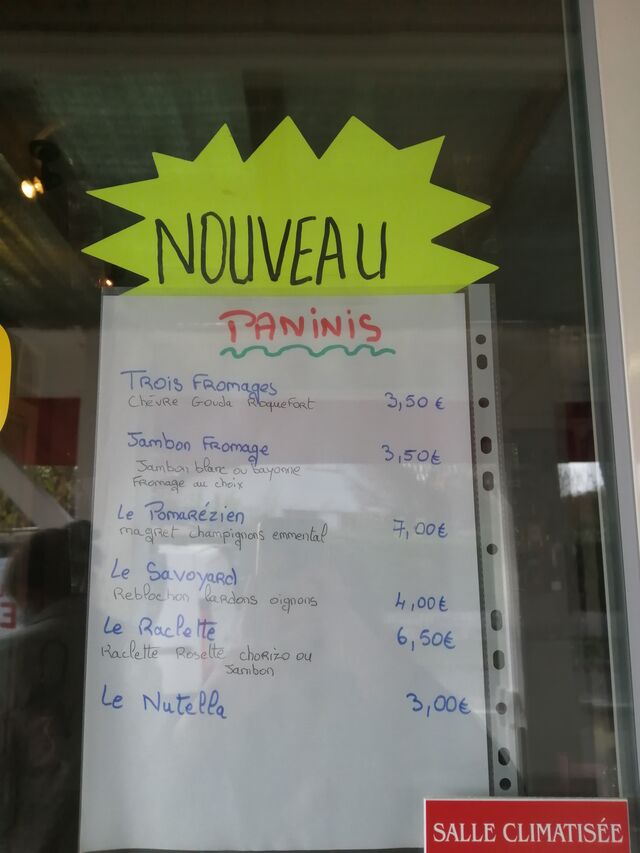 NOUVEAU
PANINIS
TROIS FROMAGES
Chèvre Gouda Roquefort 3,50 €
Jambon Fromage 3,50€
Jambon blanc ou bayonne
Fromage au choix
Le Pomarézien
magret champignons emmental 7,00€
Le Savoyard
Reblochon lardons oignons 4,00€
Le Raclette 6,50€
Raclette Rosette chorizo ou
Jambon
Le Nutella 3,00€
SALLE CLIMATISÉE